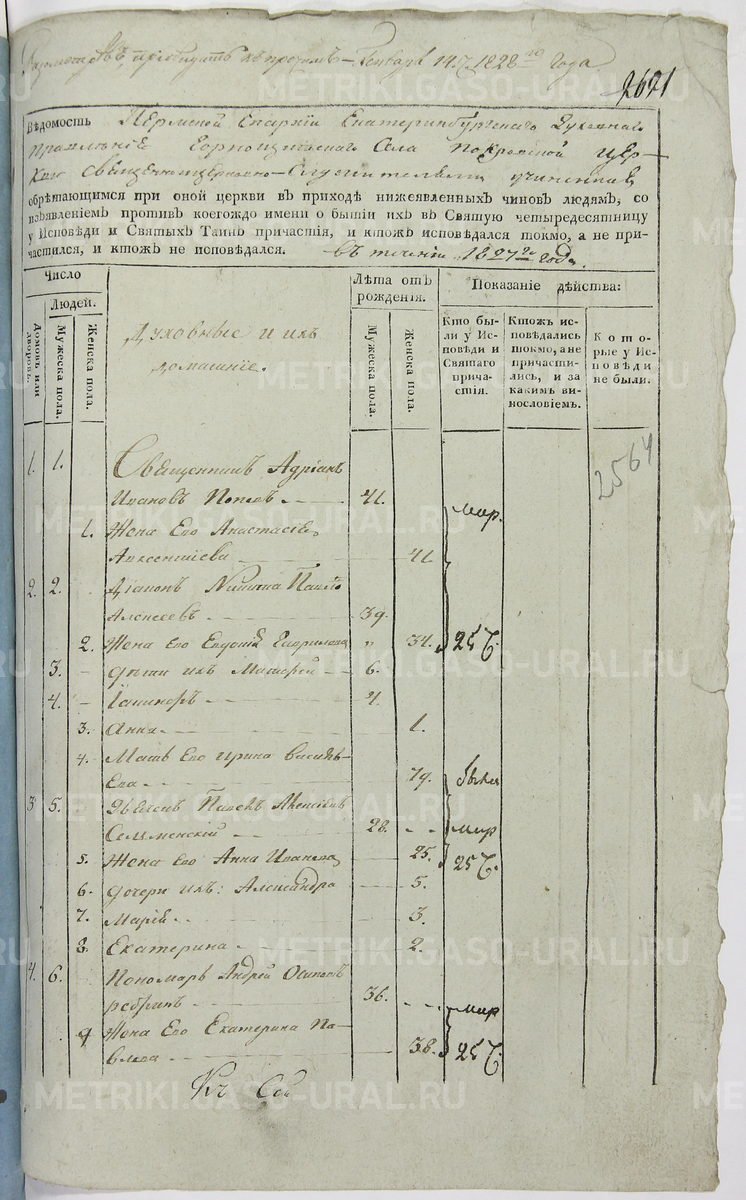 Января 14. 1828 го года
2621
Вѣдомость Пермской Епархіи Екатеринбургскаго Духовнаго
Правленія Горнощитскаго Села Покровской Цер-
кви Священноцерковно-Служителями учиненная
обрѣтающимся при оной церкви въ приходѣ нижеявленныхъ чиновъ людямъ, со
изъявленіемъ противъ коегождо имени о бытіи ихъ въ Святую четыредесятницу
у Исповѣди и Святыхъ Таинъ причастія, и ктожъ исповѣдался токмо, а не при-
частился, и ктожъ не исповѣдался. въ теченіи 1827 го года.
Число
Людей.
Домовъ или дворовъ.
Мужеска пола.
Женска пола.
Духовные и ихъ
домашніе.
Лѣта отъ
рожденія.
Мужеска пола.
Женска пола.
Показаніе дѣйства:
Кто бы-
ли у Ис-
повѣди и
Святаго
прича-
стія.
Ктожъ ис-
повѣдались
токмо, а не
причасти-
лись, и за
какимъ ви-
нословіемъ.
Кото-
рые у Ис-
повѣди
не были.
2564
1. 1. Священникъ Адріанъ
Ивановъ Поповъ 41.
1. Жена Его Анастасія
Авксентіева 41.
мар.
2. 2. Діаконъ Никита
Алексеевъ 39.
2. Жена Его Евдокія Гаврилова 34. 25 Ч.
3. дѣти ихъ Матфей 6.
4. Іаникоръ 4.
3. Анна 1.
4. Мать Его Ирина Василь-
ева 79. были
3 5. Дьячекъ Павелъ
Селяменскій 28. мар
5. Жена Его Анна Иванова 25. 25 Ч.
6. дочери ихъ: Александра 5.
7. Марія 3.
8. Екатерина 2.
4. 6. Пономарь Андрей Осиповъ
ребринъ 36. мар
9 Жена Его Екатерина Па-
влова 38. 25 Ч.
METRIKI.GASO-URAL.RU